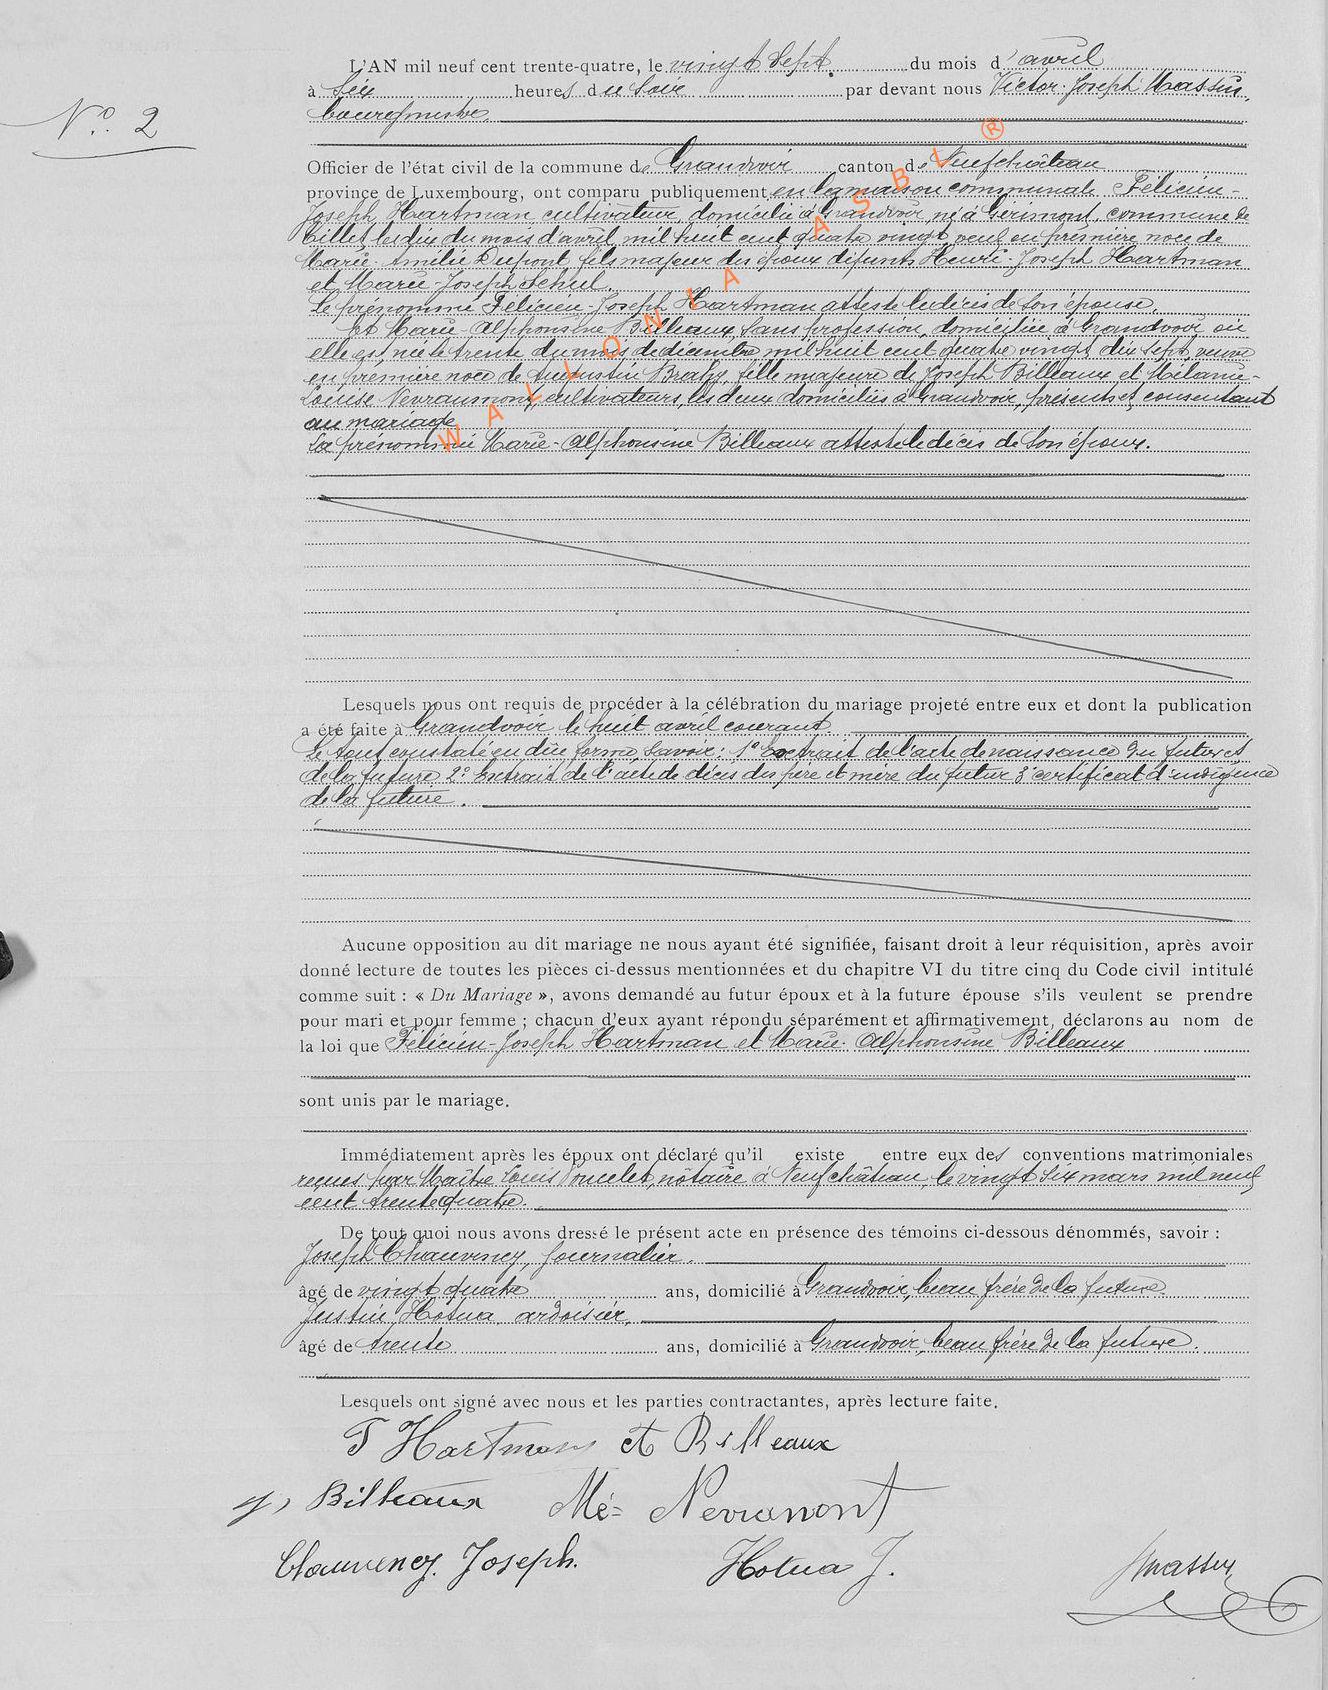 L'AN mil neuf cent trente-quatre, le vingt sept. du mois d'avril
à six heures du soir par devant nous Victor-Joseph Massin,
bourgmestre.
N° 2
Officier de l'état civil de la commune de Grandvoir canton de Neufchâteau
province de Luxembourg, ont comparu publiquement en la maison communale Félicien-
Joseph Hartman cultivateur, domicilié à Grandvoir, né à Gérimont, commune de
Tillet le dix du mois d'avril mil huit cent quatre vingt, veuf en première noce de
Marie-Amélie Dupont fils majeur des époux défunts Henri-Joseph Hartman
et Marie Joseph Schul.
Le prénommé Félicien-Joseph Hartman atteste le décès de son épouse.
Et Marie-Alphonsine Billeaux, sans profession, domiciliée à Grandvoir où
elle est née le trente du mois de décembre mil huit cent quatre vingt dix sept, veuve
en première noce de Augustin Brahy, fille majeure de Joseph Billeaux et Mélanie-
Louise Nevraumont, cultivateurs, les deux domiciliés à Grandvoir, présents et consentant
au mariage
La prénommée Marie-Alphonsine Billeaux atteste le décès de son époux.
WALLONIA ASBL ®
Lesquels nous ont requis de procéder à la célébration du mariage projeté entre eux et dont la publication
a été faite à Grandvoir le huit avril courant
Le tout constaté en due forme, savoir: 1° Extrait de l'acte de naissance du futur et
de la future 2° Extrait de l'acte de décès des père et mère du futur 3° certificat d'indigence
de la future.
Aucune opposition au dit mariage ne nous ayant été signifiée, faisant droit à leur réquisition, après avoir
donné lecture de toutes les pièces ci-dessus mentionnées et du chapitre VI du titre cinq du Code civil intitulé
comme suit : « Du Mariage », avons demandé au futur époux et à la future épouse s'ils veulent se prendre
pour mari et pour femme ; chacun d'eux ayant répondu séparément et affirmativement, déclarons au nom de
la loi que Félicien-Joseph Hartman et Marie-Alphonsine Billeaux
sont unis par le mariage.
Immédiatement après les époux ont déclaré qu'il existe entre eux des conventions matrimoniales
reçues par Maître Louis Poncelet, notaire à Neufchâteau, le vingt six mars mil neuf
cent trente quatre.
De tout quoi nous avons dressé le présent acte en présence des témoins ci-dessous dénommés, savoir :
Joseph Chauvency, journalier.
âgé de vingt quatre ans, domicilié à Grandvoir, beau frère de la future
Justin Hotua ardoisier,
âgé de trente ans, domicilié à Grandvoir, beau frère de la future.
Lesquels ont signé avec nous et les parties contractantes, après lecture faite.
F Hartman et Billeaux
J, Billeaux Mé= Nevramont
Chauvency. Joseph. Hotua J.
Massin